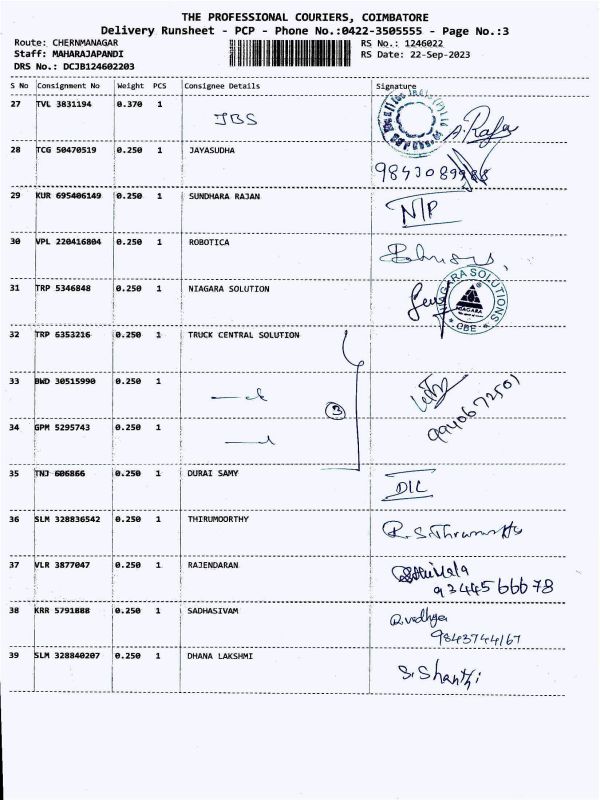 THE PROFESSIONAL COURIERS, COIMBATORE
Delivery Runsheet - PCP - Phone No.:0422-3505555 - Page No.:3
Route: CHERNMANAGAR RS No.: 1246022
Staff: MAHARAJAPANDI RS Date: 22-Sep-2023
DRS No.: DCJB124602203
S No Consignment No Weight PCS Consignee Details Signature
27 TVL 3831194 0.370 1 IBS A. Raja
28 TCG 50470519 0.250 1 JAYASUDHA
29 KUR 695406149 0.250 1 SUNDHARA RAJAN N/P
30 VPL 220416804 0.250 1 ROBOTICA
31 TRP 5346848 0.250 1 NIAGARA SOLUTION NIAGARA SOLUTIONS NIAGARA CBE
32 TRP 6353216 0.250 1 TRUCK CENTRAL SOLUTION
33 BWD 30515990 0.250 1 3 9940672501
34 GPM 5295743 0.250 1
35 TNJ 606866 0.250 1 DURAI SAMY D/L
36 SLM 328836542 0.250 1 THIRUMOORTHY
37 VLR 3877047 0.250 1 RAJENDARAN 9344566678
38 KRR 5791888 0.250 1 SADHASIVAM R.vidhya
9843744167
39 SLM 328840207 0.250 1 DHANA LAKSHMI S. Shanthi